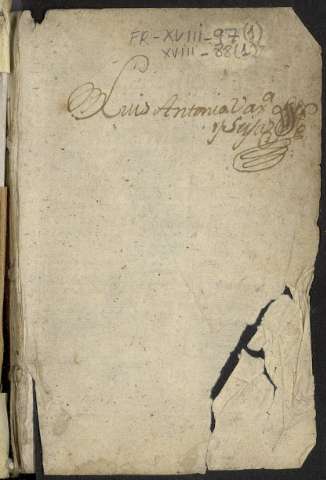 FR-XVIII-97(1)
XVIII-88(1)
Luis Antonio Varª
y